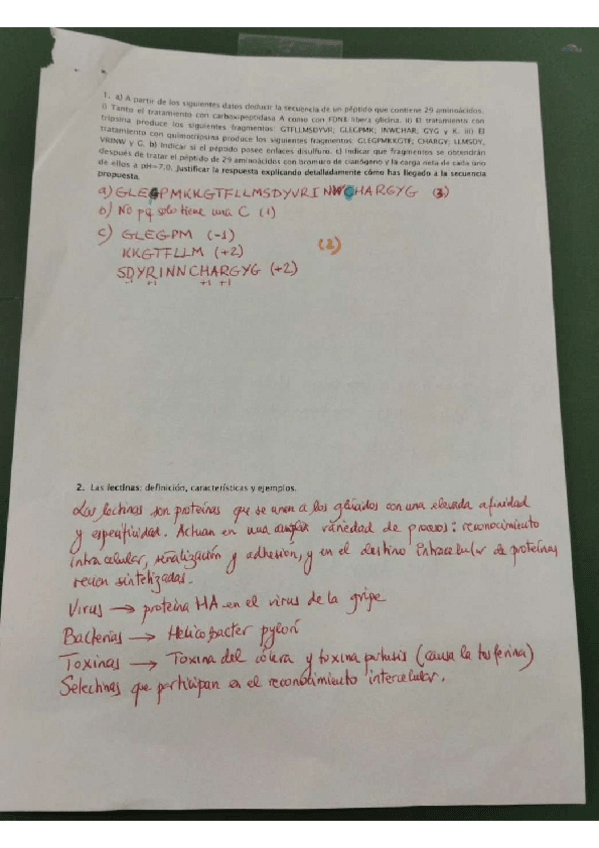 1. a) A partir de los siguientes datos deducir la secuencia de un péptido que contiene 29 aminoácidos.
i) Tanto el tratamiento con carboxipeptidasa A como con FDNB libera glicina. ii) El tratamiento con
tripsina produce los siguientes fragmentos: GTFLLMSDYVR; GLEGPMK; INWCHAR; GYG y K. iii) El
tratamiento con quimotripsina produce los siguientes fragmentos: GLEGPMKKGTF; CHARGY; LLMSDY,
VRINW y G. b) Indicar si el péptido posee enlaces disulfuro. c) Indicar que fragmentos se obtendrán
después de tratar el péptido de 29 aminoácidos con bromuro de cianógeno y la carga neta de cada uno
de ellos a pH=7,0. Justificar la respuesta explicando detalladamente cómo has llegado a la secuencia
propuesta.
a) GLEGPMKKGTFLLMSDYVRINWCHARGYG (3)
b) No pq solo tiene una C (1)
c) GLEGPM (-1)
KKGTFLLM (+2) (2)
SDYRINNCHARGYG (+2)
- +1 +1 +1
2. Las lectinas: definición, características y ejemplos.
Las lectinas son proteínas que se unen a los glúcidos con una elevada afinidad
y especificidad. Actuan en una amplia variedad de procesos: reconocimiento
intracelular, señalización y adhesión, y en el destino intracelular de proteínas
recien sintetizadas.
Virus → proteína HA en el virus de la gripe
Bacterias → Helicobacter pylori
Toxinas → Toxina del cólera y toxina pertusis (causa la tosferina)
Selectinas que participan en el reconocimiento intercelular.